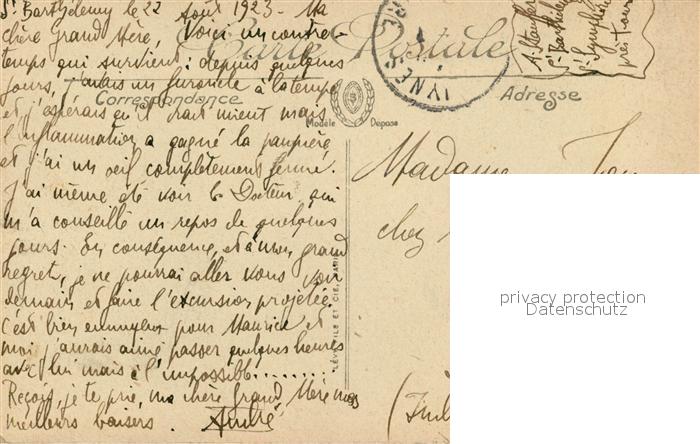 St Barthélemy le 22 Août 1923 - Ma
chère Grand Mère, Voici un contre-
temps qui survient : depuis quelques
jours, j'avais un furoncle à la tempe
et j'espérais qu'il irait mieux mais
l'inflammation a gagné la paupière
et j'ai un oeil complètement fermé.
J'ai même été voir le Docteur qui
m'a conseillé un repos de quelques
jours. En conséquence, et à mon grand
regret, je ne pourrai aller vous voir
demain et faire l'excursion projetée.
C'est bien ennuyeux pour Maurice et
moi j'aurais aimé passer quelques heures
avec lui mais à l'impossible.......
Reçois, je te prie, ma chère Grand Mère mes
meilleurs baisers. André
Carte Postale
Correspondance
Modèle Déposé
Adresse
LÉVEILLÉ ET CIE, PARIS
St Barthéle
St Symphorien
près Tours
Madame
chez
privacy protection
Datenschutz